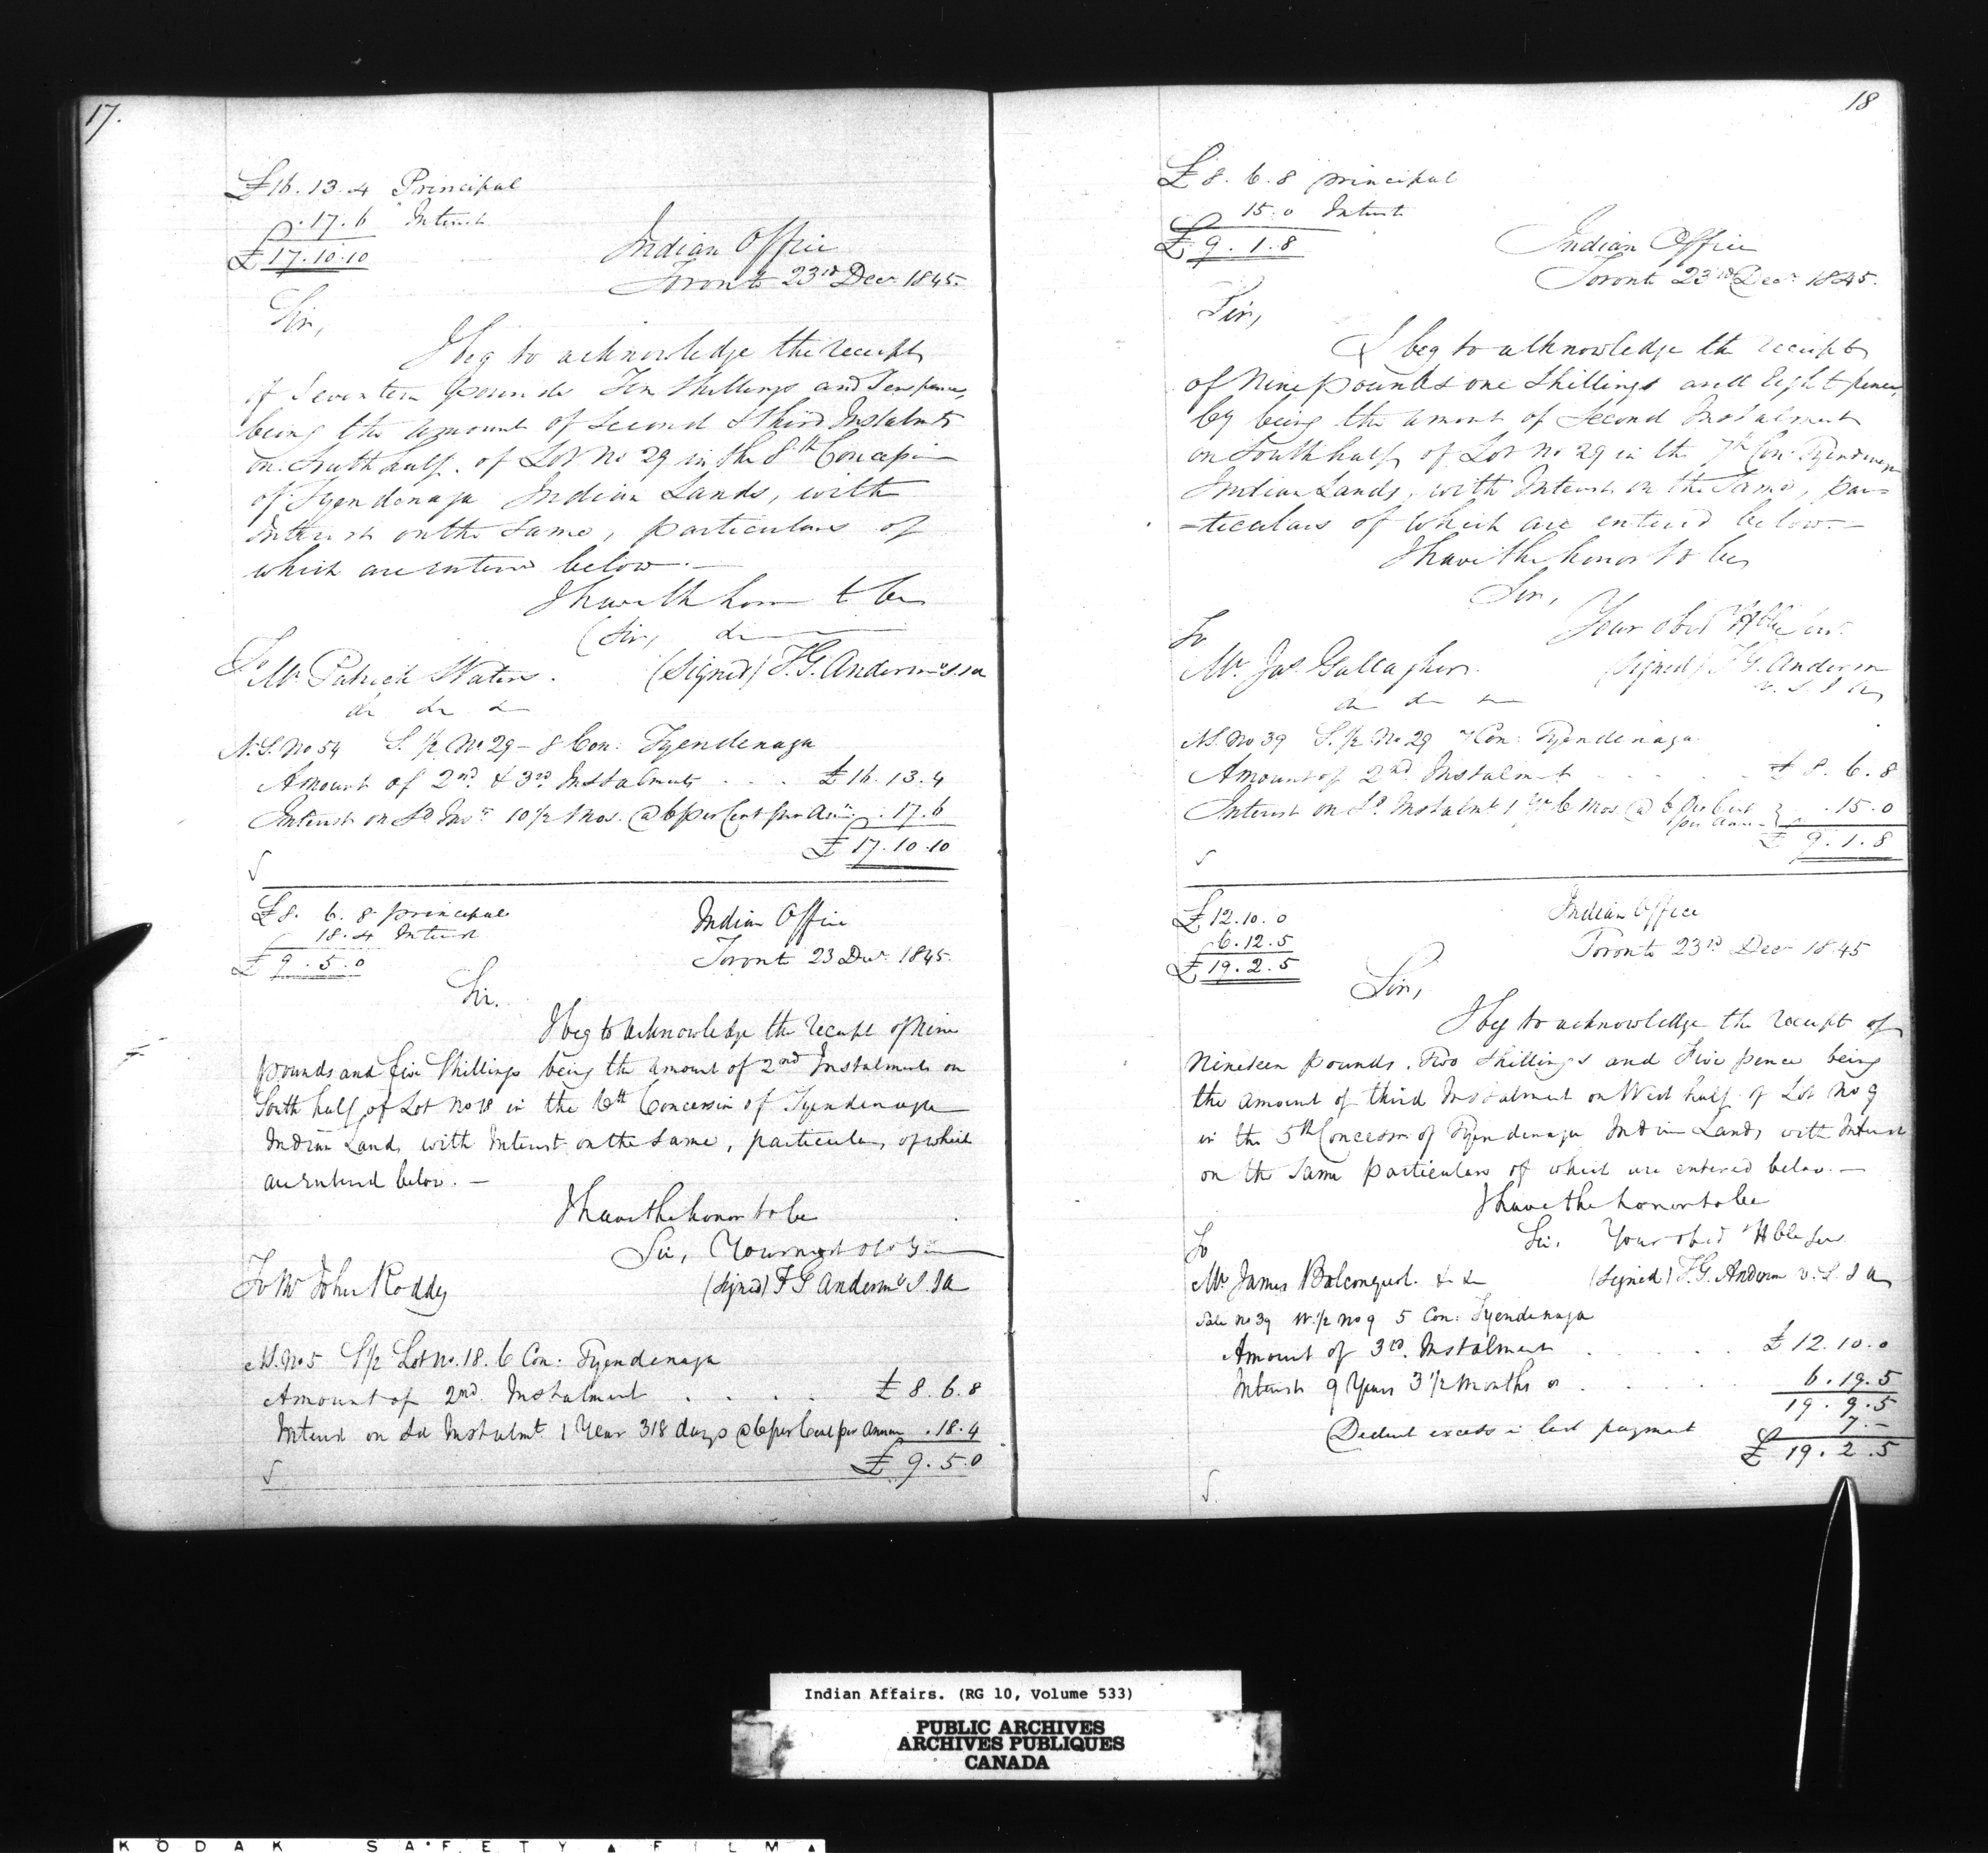 17.
£16.13.4 Principal
.17.6 Interest
£17.10.10
Indian Office
Toronto 23rd Decr 1845.
Sir,
I beg to acknowledge the receipt
of Seventeen Pounds Ten Shillings and Ten pence,
being the amount of Second & third Instalmts
on South half of Lot No 29 in the 8th Concession
of Tyendenaga Indian Lands, with
Interest on the Same, particulars of
which are entered below.—
I have the honor to be
Sir, do
To Mr Patrick Waters. (Signed) T.G. Anderson v.S.I.A
do do do
N.S. No 54 S. 1/2 No 29 - 8 Con: Tyendenaga
Amount of 2nd & 3rd Instalments . . . £16.13.4
Interest on Sd Inst 10 1/2 Mos. @ 6 per Cent per Ann: .17.6
£17.10.10
£8.6.8 principal
18.4 Interest
£9.5.0
Indian Office
Toronto 23 Decr 1845.
Sir.
I beg to acknowledge the receipt of Nine
pounds and five Shillings being the amount of 2nd Instalments on
South half of Lot No 18 in the 6th Concession of Tyendenaga
Indian Land, with Interest on the same, particulars of which
are entered below. —
I have the honor to be
Sir, Your most
To Mr John Roddy (Signed) T G Anderson v.S.I.A
N.S. No 5 S 1/2 Lot No. 18. 6 Con: Tyendenaga
Amount of 2nd Instalment . . . . £8.6.8
Interest on Sd Instalmt. 1 Year 318 days @ 6 per Cent per Annum .18.4
£9.5.0
18
£8.6.8 principal
15.0 Interest
£9.1.8
Indian Office
Toronto 23rd Decr 1845.
Sir,
I beg to acknowledge the receipt
of Nine pounds one Shillings and Eight pence,
by being the amount of Second Instalment
on South half of Lot No 29 in the 7th Con. Tyendenaga
Indian Lands, with Interest on the Same, par=
=ticulars of which are entered below.—
I have the honor to be
Sir,
Your obdt Hble Ser.
To
Mr. Jas. Gallagher. (Signed) T G. Anderson
v. S. I A
do do do
N.S. No 39 S. 1/2 No 29 7 Con: Tyendenaga.
Amount of 2nd Instalment . . . . £8.6.8
Interest on Sd. Instalmt 1 Yr 6 Mos @ 6 per Cent
per Ann .15.0
£9.1.8
£12.10.0
6.12.5
£19.2.5
Indian Office
Toronto 23rd Decr 1845
Sir,
I beg to acknowledge the receipt of
Nineteen pounds. Two Shillings and Five pence being
the amount of third Instalment on West half of Lot No 9
in the 5th Concession of Tyendenaga Indian Lands with Interest
on the Same particulars of which are entered below.—
I have the honor to be
Sir. Your obed Hble Ser
To
Mr James Balconquel. & & (Signed) T.G. Anderson v.S. I A
Sale No 39 W. 1/2 No 9 5 Con: Tyendenaga
Amount of 3rd. Instalment . . . . £12.10.0
Interest 9 Years 3 1/2 Months . . . . 6.19.5
19.9.5
Deduct excess in last payment 7.—
£19.2.5
Indian Affairs. (RG 10, Volume 533)
PUBLIC ARCHIVES
ARCHIVES PUBLIQUES
CANADA
KODAK SAFETY FILM